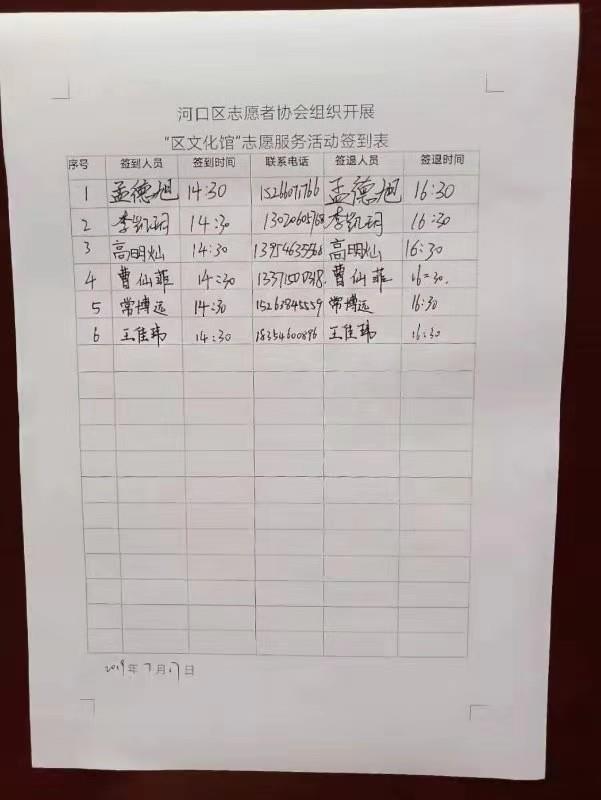 河口区志愿者协会组织开展
“区文化馆”志愿服务活动签到表
序号 签到人员 签到时间 联系电话 签退人员 签退时间
1 孟德旭 14:30 孟德旭 16:30
2 李凯玥 14:30 李凯玥 16:30
3 高明灿 14:30 高明灿 16:30
4 曹仙菲 14:30 曹仙菲 16:30.
5 常博远 14:30 15263845559 常博远 16:30
6 王佳玮 14:30 18354600896 王佳玮 16:30
2019年7月17日